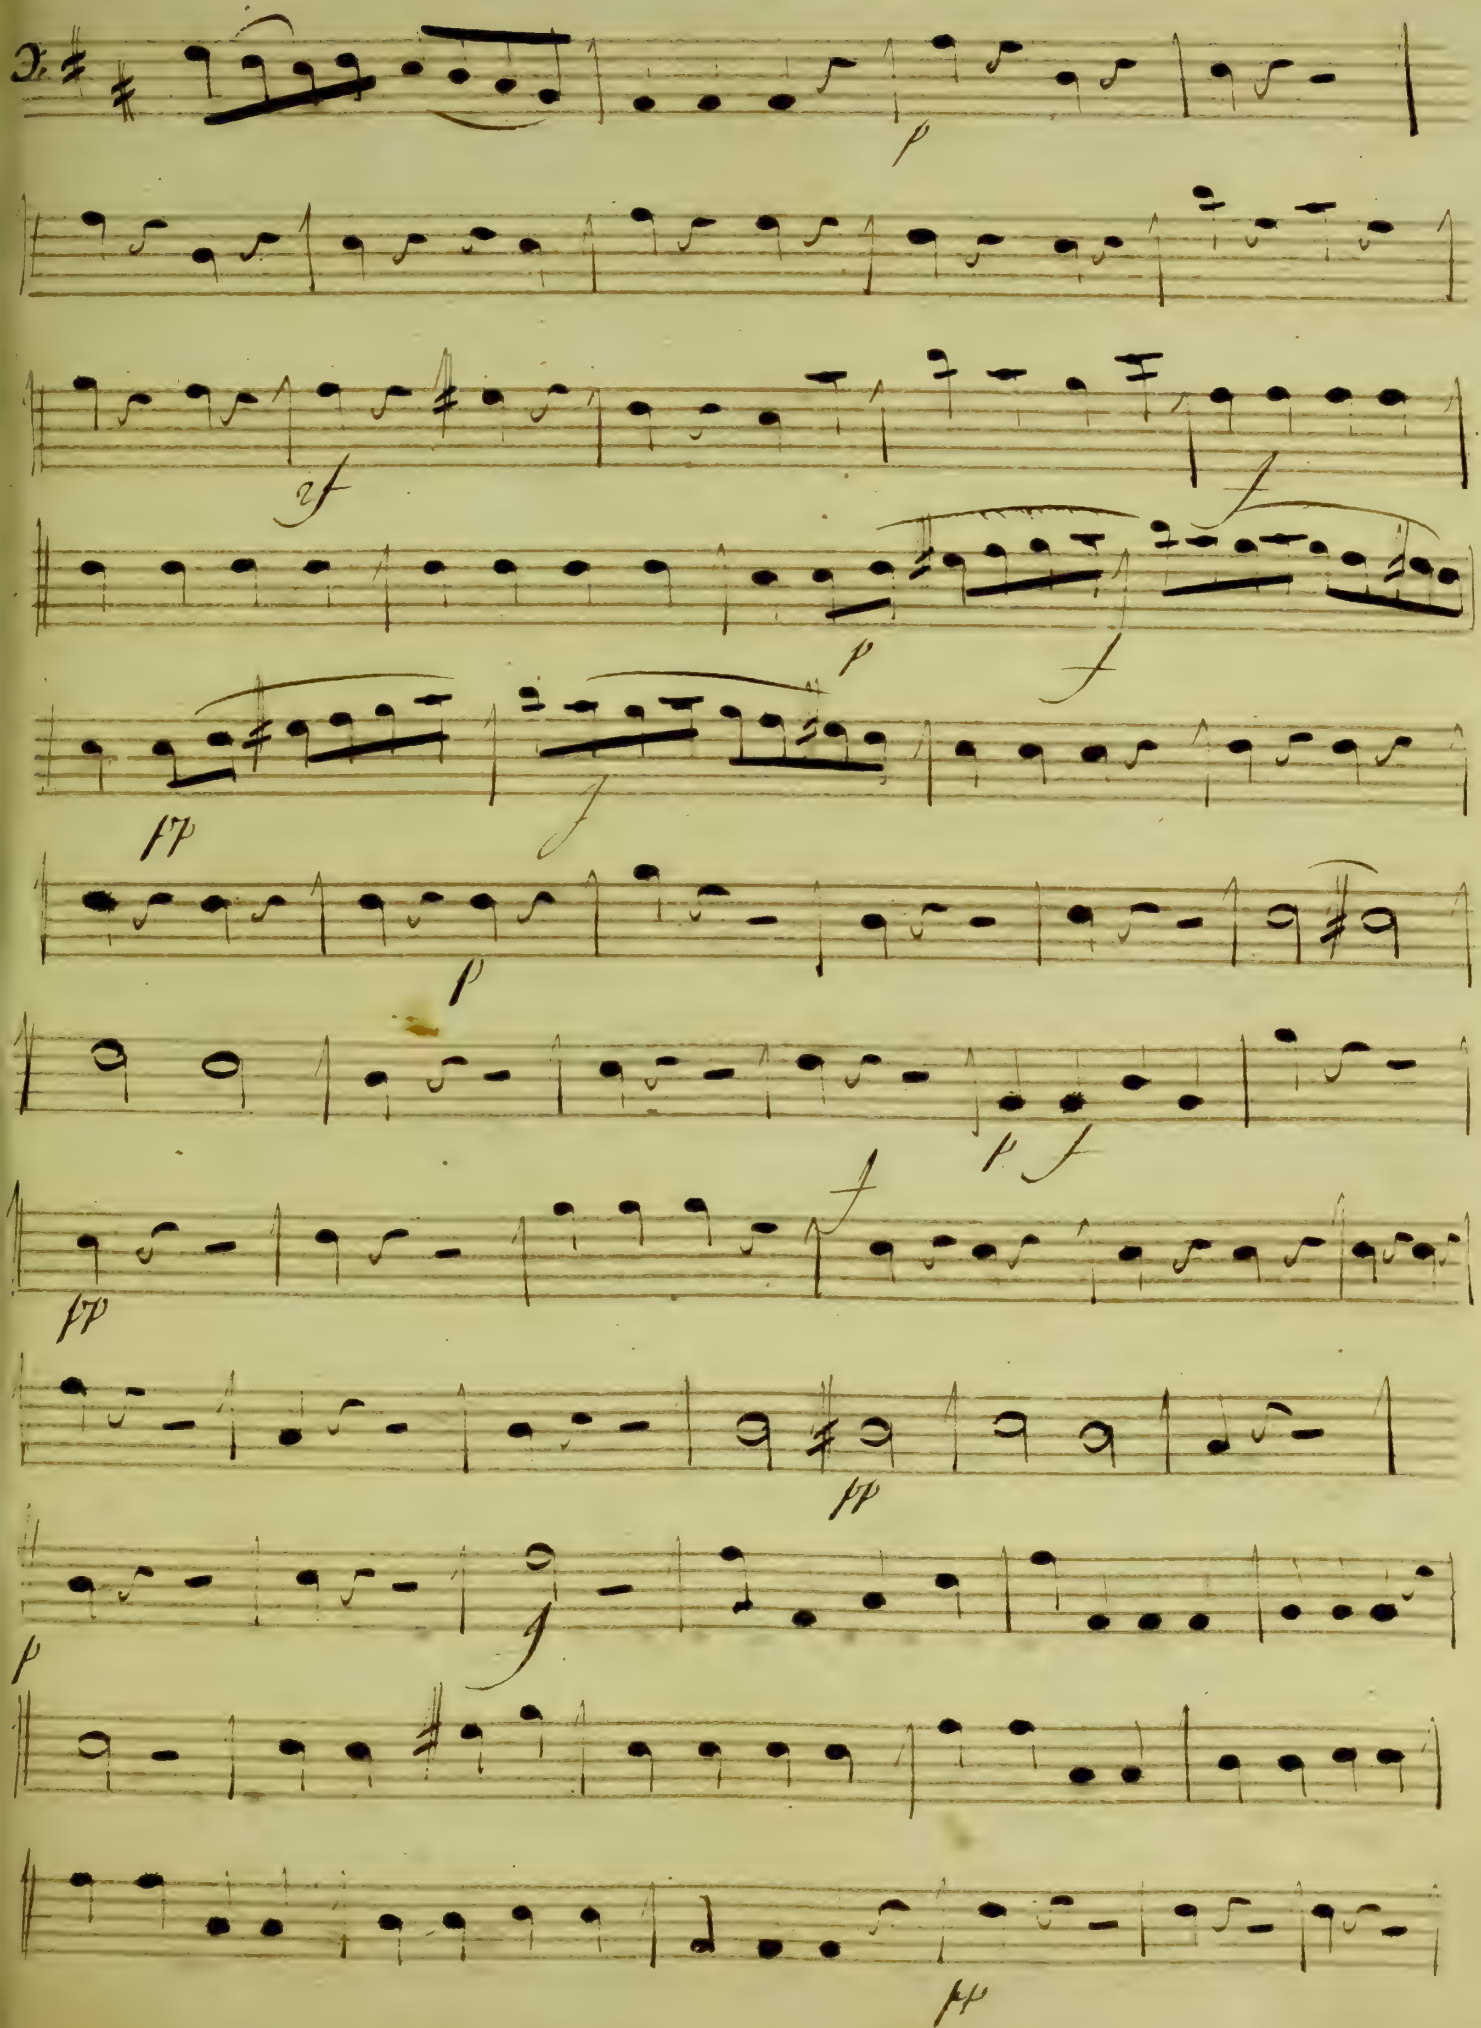 p
rf f
p f
pp f
p
p f
pp f
pp
p f
pp